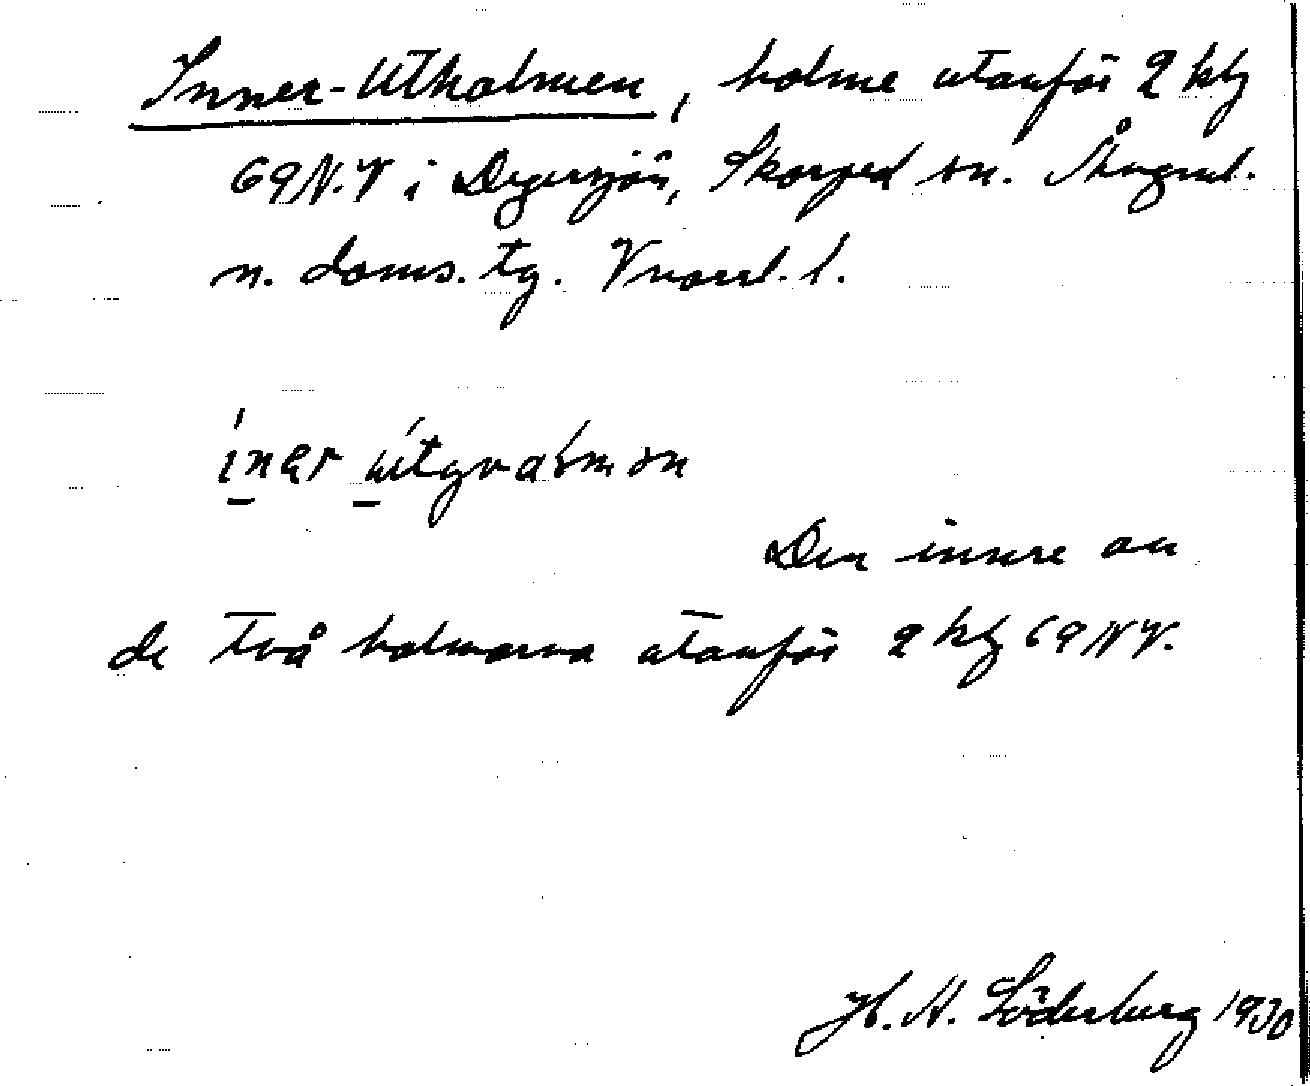 Inner-Utholmen, holme utanför 2 klg
69 N.V i Degersjön, Skorped sn. Ångml.
n. doms. tg. Vnorrl. l.
Den inre av
de två holmarna utanför 2 klg 69 NV.
H. M. Söderberg 1930